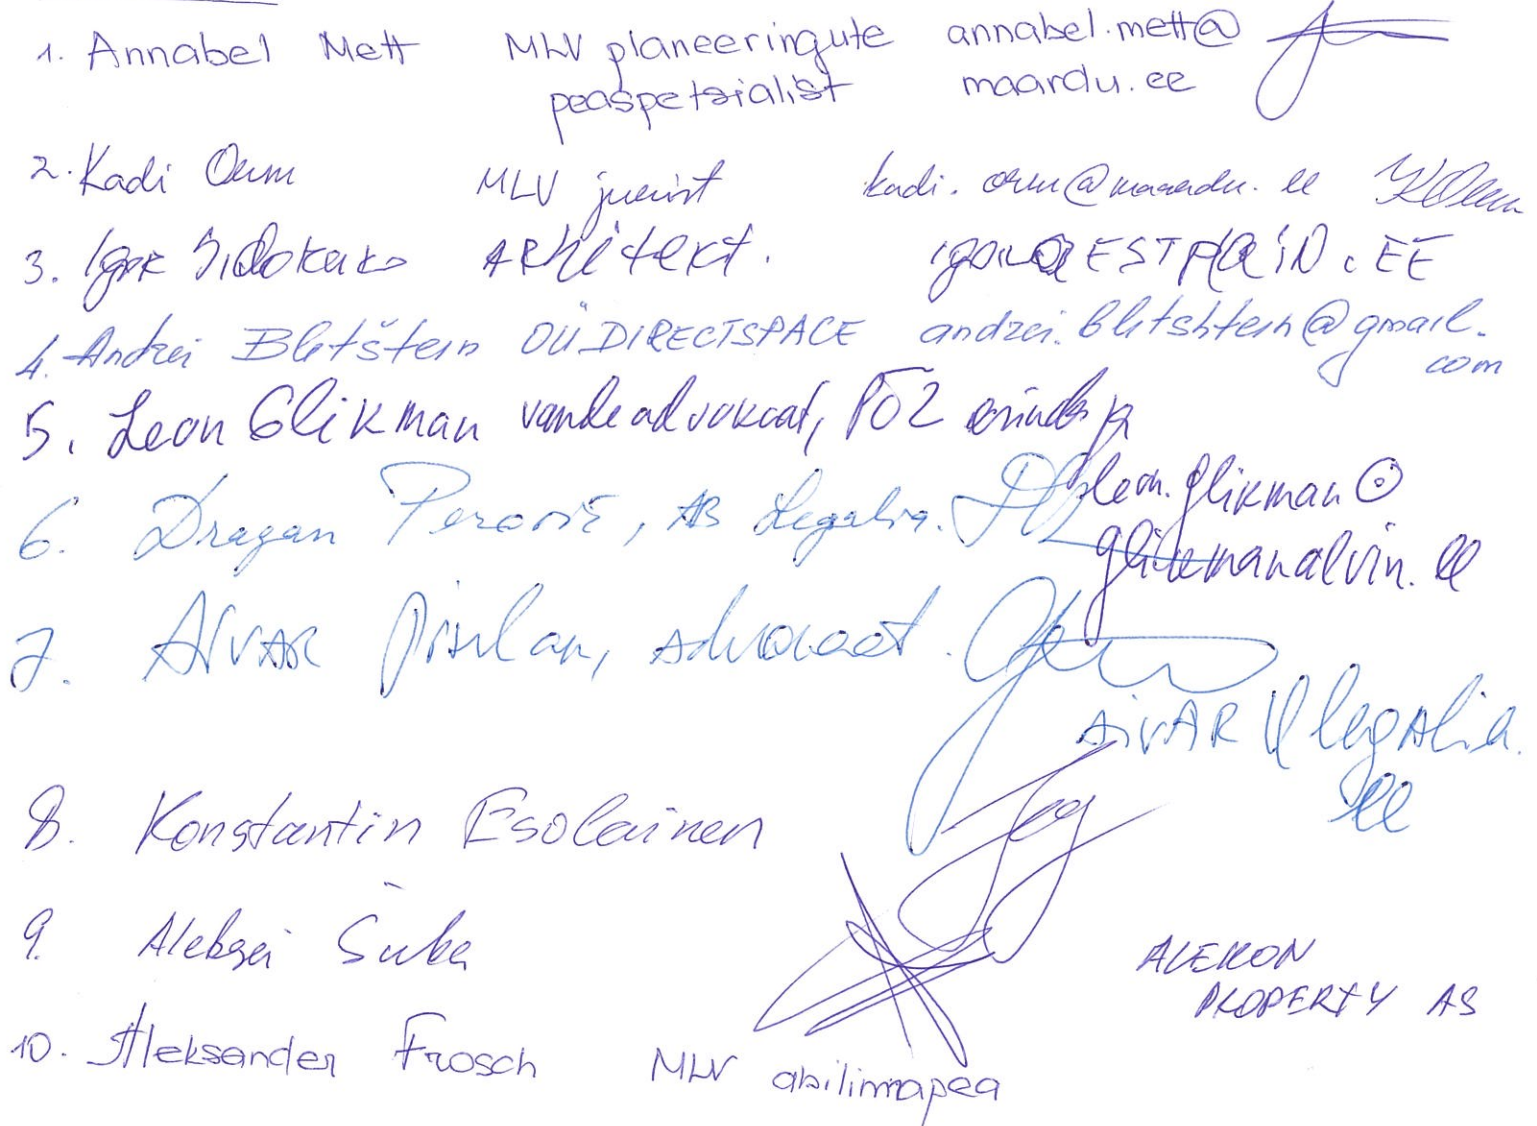 1. Annabel Mett MLV planeeringute annabel.mett@
peaspetsialist maardu.ee
2. Kadi Orm MLV jurist kadi.orm@maardu.ee
3. Igor ARhitekt. igor@ESTPRIN.EE
4. Andrei Blitštein OÜ DIRECTSPACE andrei.blitshtein@gmail.
com
5. Leon Glikman vandeadvokaat, esindaja
leon.glikman@
glikmanalvin.ee
6. Dragan Perovič, AB Legalia.
7. AivAR Pihlak, Advokaat.
AivAR @ legAlia.
ee
8. Konstantin Esolainen
9. Aleksei Šuba ALEKON
PROPERTY AS
10. Aleksander Frosch MLV abilinnapea